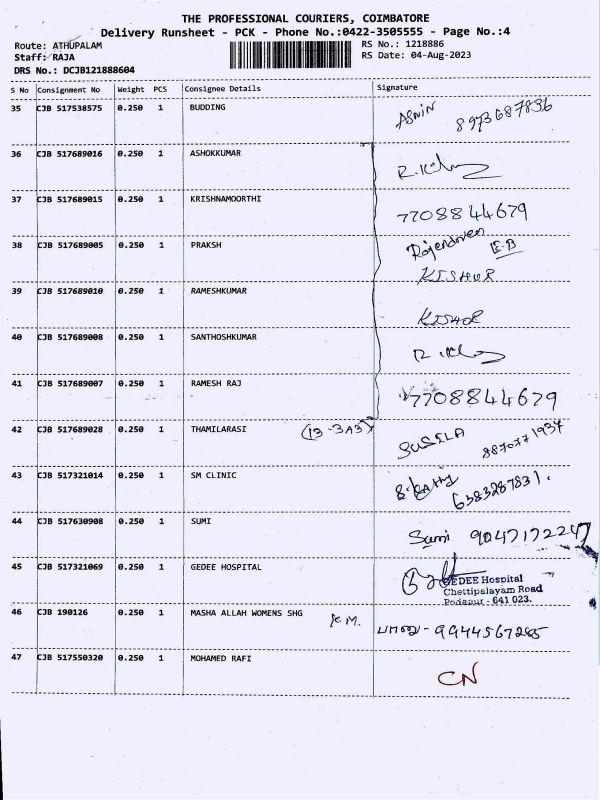 THE PROFESSIONAL COURIERS, COIMBATORE
Delivery Runsheet - PCK - Phone No.:0422-3505555 - Page No.:4
Route: ATHUPALAM RS No.: 1218886
Staff: RAJA RS Date: 04-Aug-2023
DRS No.: DCJB121888604
S No Consignment No Weight PCS Consignee Details Signature
35 CJB 517538575 0.250 1 BUDDING ASWIN 8973687836
36 CJB 517689016 0.250 1 ASHOKKUMAR
37 CJB 517689015 0.250 1 KRISHNAMOORTHI 7708844679
38 CJB 517689005 0.250 1 PRAKSH Rajendiren E-B
KISHOR
39 CJB 517689010 0.250 1 RAMESHKUMAR KISHOR
40 CJB 517689008 0.250 1 SANTHOSHKUMAR
41 CJB 517689007 0.250 1 RAMESH RAJ 7708844679
42 CJB 517689028 0.250 1 THAMILARASI (13-3A3) SUSELA 8870771937
43 CJB 517321014 0.250 1 SM CLINIC 6383287831.
44 CJB 517630908 0.250 1 SUMI Sumi 9047172247
45 CJB 517321069 0.250 1 GEDEE HOSPITAL GEDEE Hospital
Chettipalayam Road
Podanur - 641 023.
46 CJB 190126 0.250 1 MASHA ALLAH WOMENS SHG K.M. பானு - 9944567285
47 CJB 517550320 0.250 1 MOHAMED RAFI CN